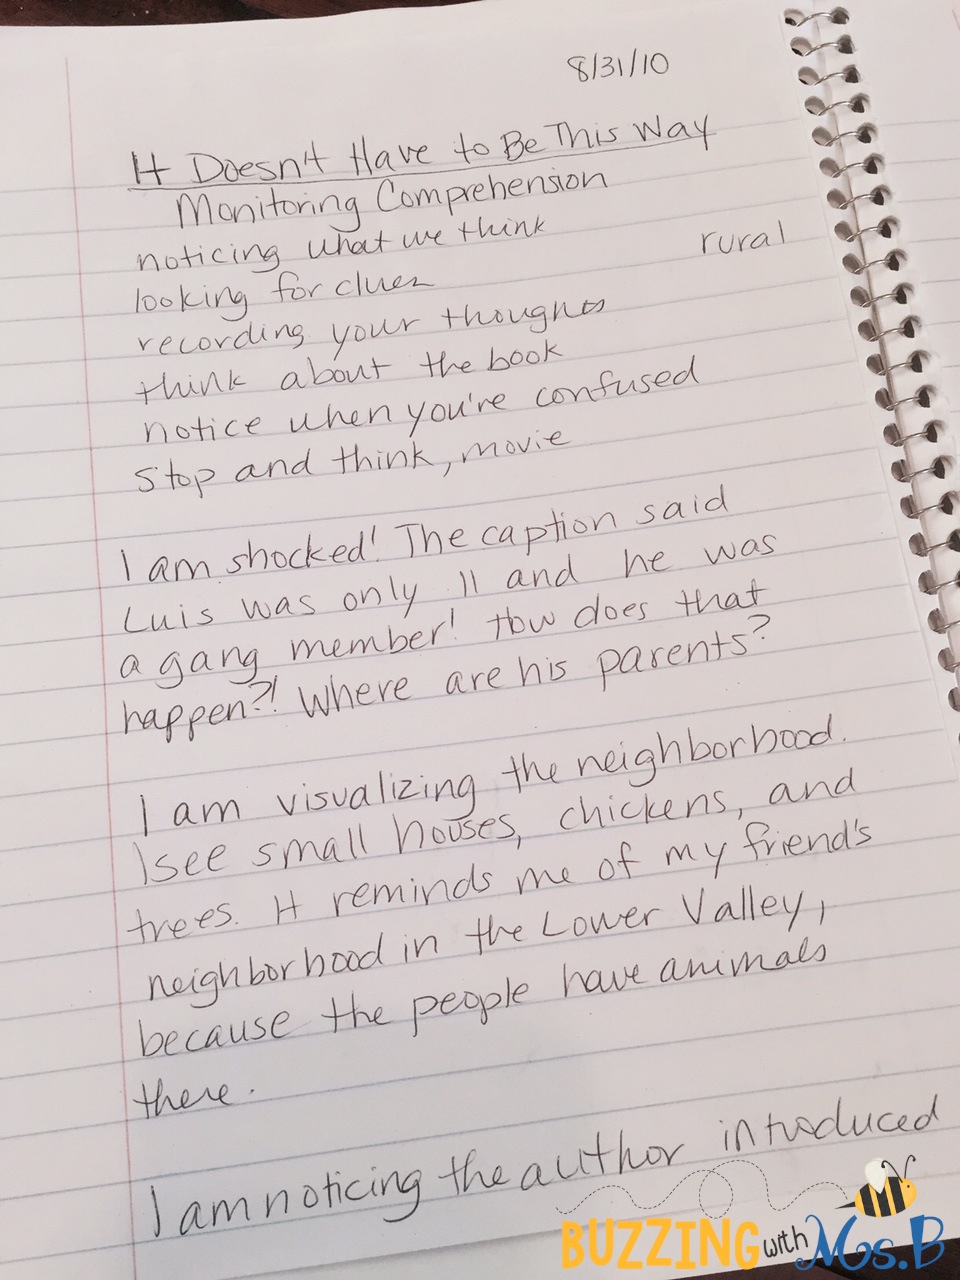 8/31/10
It Doesn't Have to Be This Way
Monitoring Comprehension
noticing what we think
rural
looking for clues
recording your thoughts
think about the book
notice when you're confused
stop and think, movie
I am shocked! The caption said
Luis was only 11 and he was
a gang member! How does that
happen?! Where are his parents?
I am visualizing the neighborhood.
I see small houses, chickens, and
trees. It reminds me of my friend's
neighborhood in the Lower Valley,
because the people have animals
there.
I am noticing the author introduced
BUZZING with Ms.B